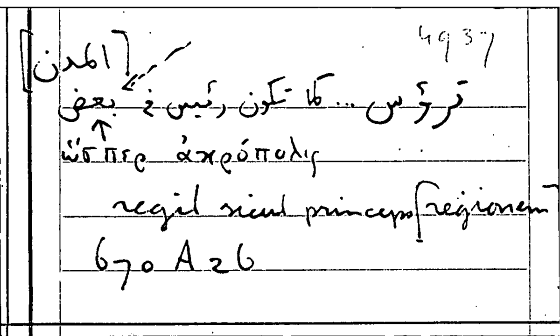 4937
[المدن]
ترؤس ... كما تكون رئيس في بعض
ὥσπερ ἀκρόπολις
regit sicut princeps [regionem
670 A 26